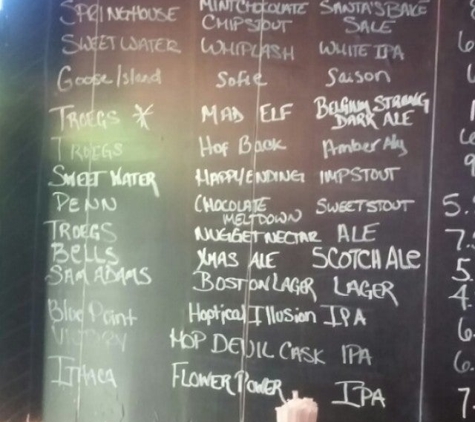 SPRINGHOUSE MINTCHOCOLATE CHIPSTOUT SANTA'S BAKE SALE
SWEETWATER WHIPLASH WHITE IPA
Goose Island Sofie Saison
TROEGS * MAD ELF BELGIUM STRONG DARK ALE
TROEGS Hop Back Amber Ale
SWEET WATER HAPPY ENDING IMPSTOUT
PENN CHOCOLATE MELTDOWN SWEETSTOUT 5.
TROEGS NUGGET NECTAR ALE 7.
BELLS XMAS ALE SCOTCH ALE 5
SAM ADAMS BOSTON LAGER LAGER 4.
Blue Point Hoptical Illusion IPA 6.
VICTORY HOP DEVIL CASK IPA 6.
ITHACA FLOWER POWER IPA 7.